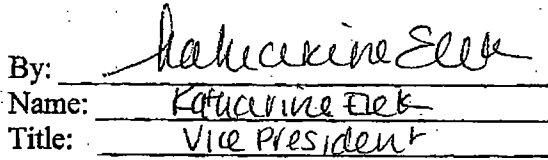 By: Katharine Elek
Name: Katharine Elek
Title: Vice President